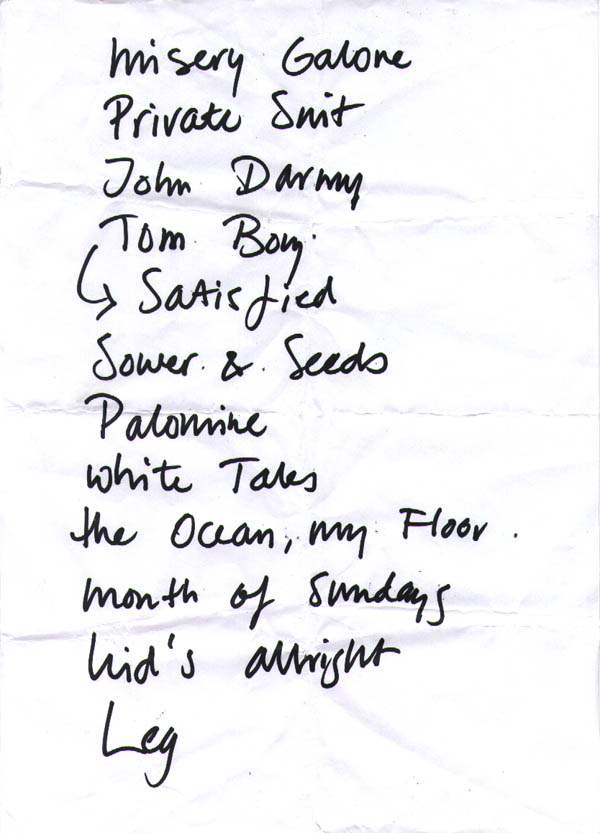 Misery Galore
Private Suit
John Darmy
Tom Boy.
↳ Satisfied
Sower. & Seeds
Palomine
White Tales
the Ocean, my Floor.
month of Sundays
kid's allright
Leg